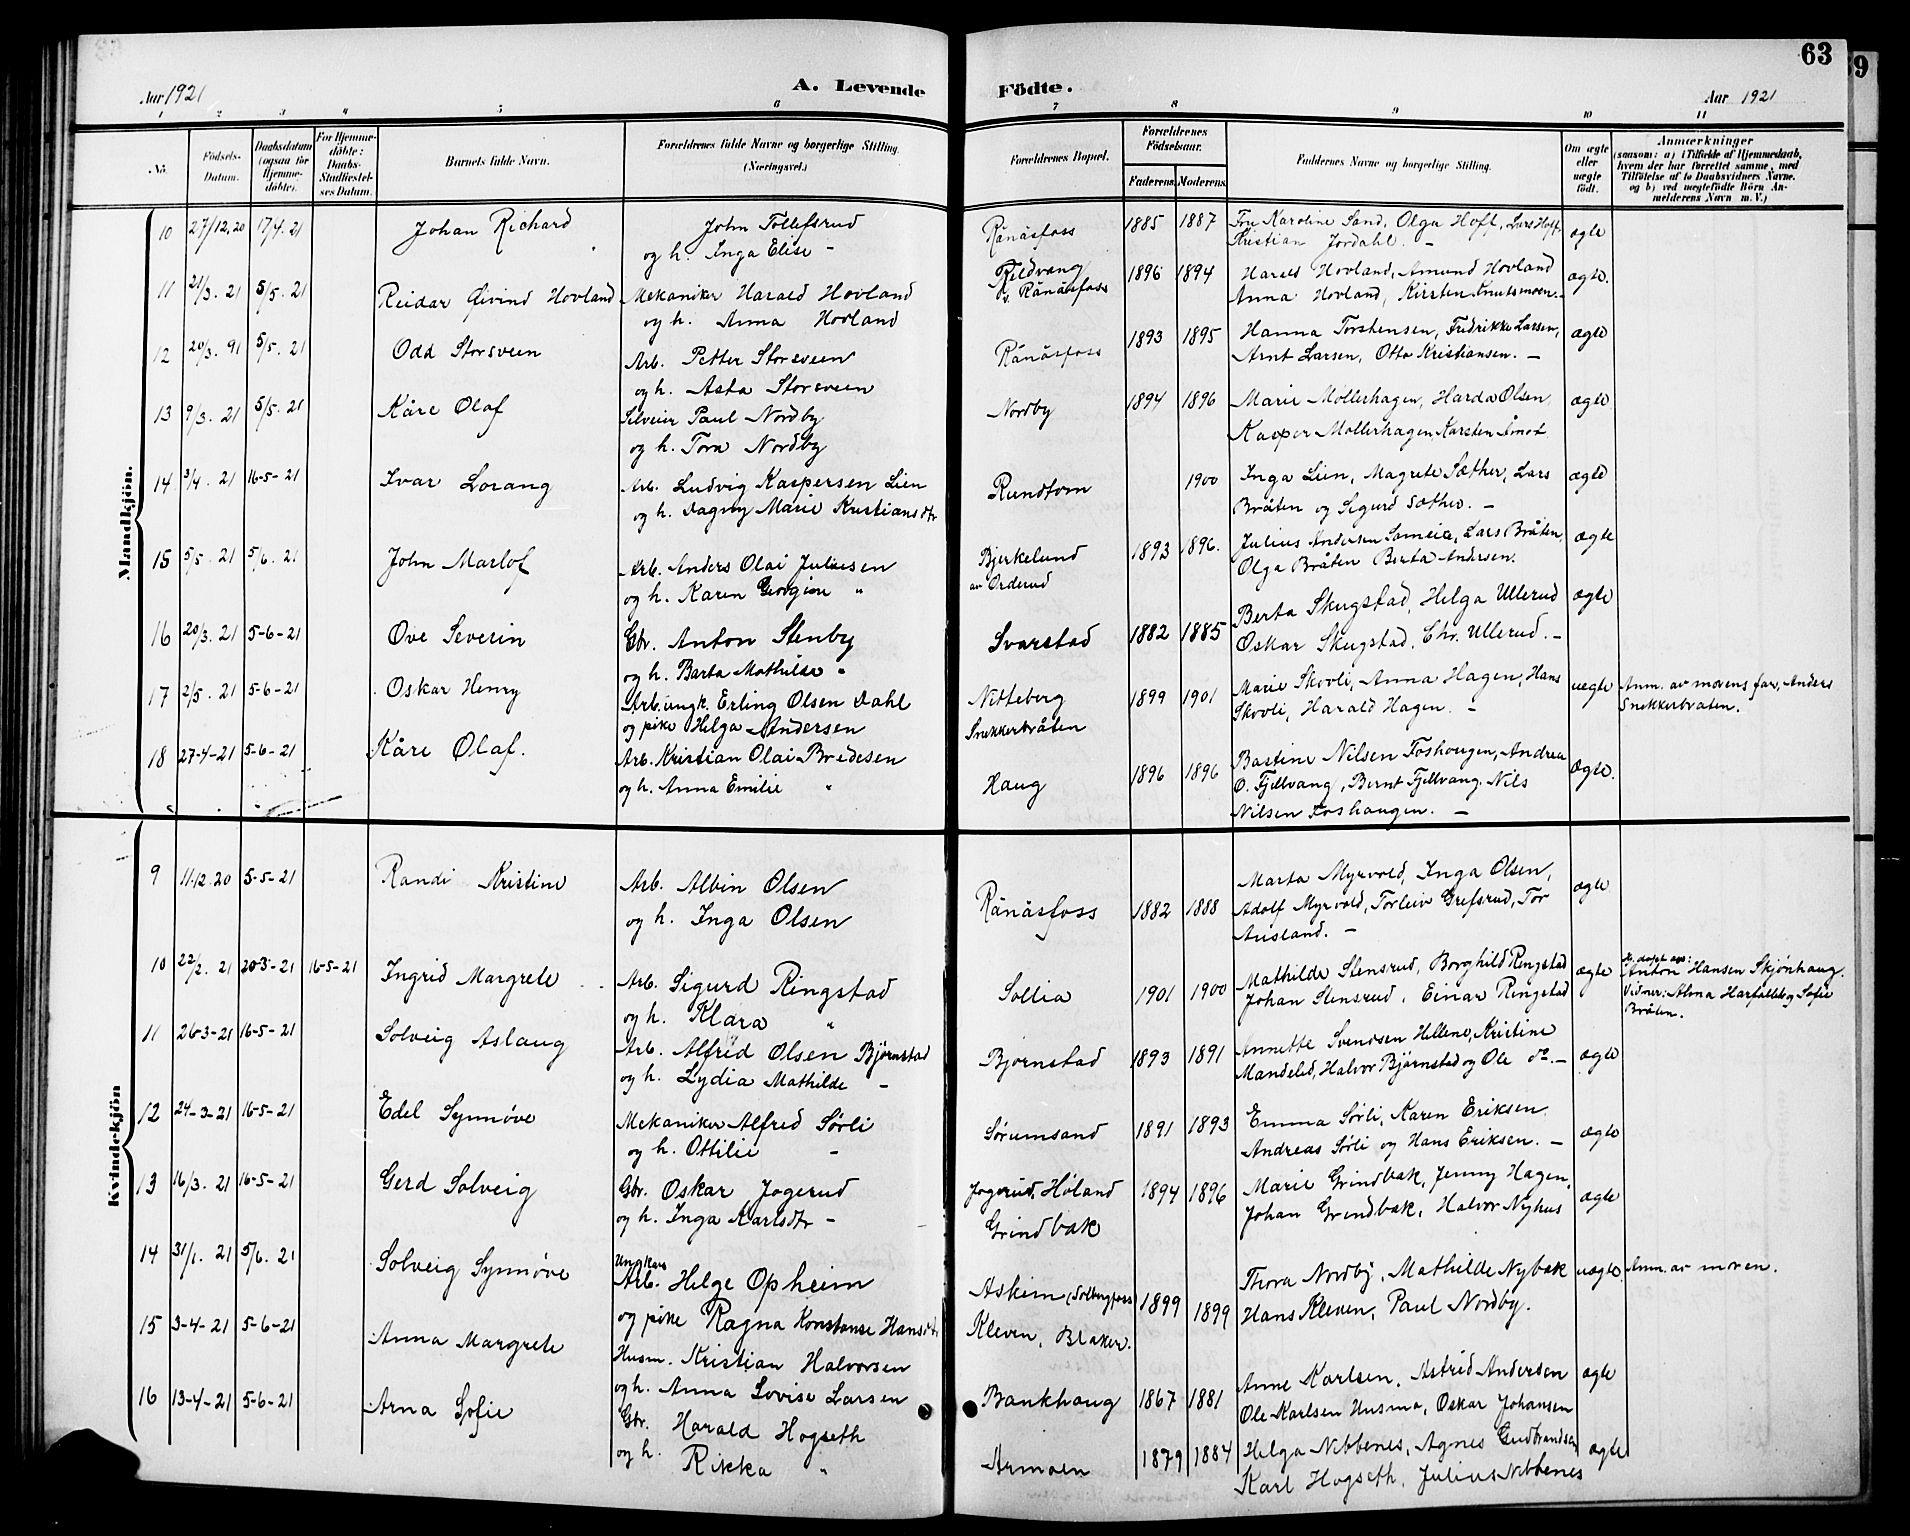 63
Aar 1921
A. Levende Födte.
Aar 1921
1 2 3 4 5 6 7 8 9 10 11
No.
Födsels-Datum.
Daabsdatum (ogsaa for Hjemmedöbte).
For Hjemmedöbte: Daabs-Stadfæstelses Datum.
Barnets fulde Navn.
Forældrenes fulde Navne og borgerlige Stilling. (Næringsvei.)
Forældrenes Bopæl.
Forældrenes Födselsaar.
Faderens. Moderens.
Faddernes Navne og borgerlige Stilling.
Om ægte eller uægte födt.
Anmærkninger
(saasom: a) i Tilfælde af Hjemmedaab, hvem der har forrettet samme, med Tilföielse af to Daabsvidners Navne. og b) ved uægtefödte Börn Anmelderens Navn m. V.)
Mandkjön.
10 27/12.20 17/4.21 Johan Richard John Tollefsrud Rånåsfoss 1885 1887 Fru Karoline Sand, Olga Hoff, Lars Hoff, ægte
og h. Inga Elise - Kristian Jordahl. -
11 21/3.21 5/5.21 Reidar Øivind Hovland Mekaniker Harald Hovland Feldvang 1896 1894 Harald Hovland, Amund Hovland ægte.
og h. Anna Hovland Rånåsfoss Anna Hovland, Kirsten Knutsmoen. -
12 20/3.91 5/5.21 Odd Storsveen Arb. Petter Storsveen Rånåsfoss 1893 1895 Hanna Torstensen, Fredrikke Larsen, ægte
og h. Asta Storsveen Arnt Larsen, Otto Kristiansen. -
13 9/3.21 5/5.21 Kåre Olaf Paul Nordby Nordby 1894 1896 Marie Mollerhagen, Harda Olsen ægte
og h. Tora Nordby Kasper Mollerhagen, Karsten Åmot
14 3/4.21 16-5-21 Ivar Lorang Arb. Ludvig Kaspersen Lien Rundtom 1900 Inga Lien, Magrete Sæther, Lars ægte
og h. Dagny Marie Kristiansdtr Bråten og Sigurd Sæther. -
15 5/5.21 5/6.21 John Marlof Arb. Anders Olai Juliusen Bjerkelund 1893 1896. Julius Andersen, Lars Bråten, ægte
og h. Karen Georgine " av Orderud Olga Bråten Berta Andersen.
16 20/3.21 5-6-21 Ove Severin Gbr. Anton Stenby Svarstad 1882 1885 Berta Skugstad, Helga Ullerud ægte
og h. Barta Mathilde " Oskar Skugstad, Chr. Ullerud. -
17 2/5.21 5-6-21 Oskar Henry Arb. ungk. Erling Olsen Dahl Nitteberg 1899 1901 Marie Skovli, Anna Hagen, Hans uægte Anm. av morens far, Anders
og pike Helga Andersen Snekkerbråten Skovli, Harald Hagen. - Snekkerbråten.
18 27-4-21 5-6-21 Kåre Olaf. Arb. Kristian Olai Bredesen Haug 1896 1896 Bastine Nilsen Foshaugen, Andrea Ægte.
og h. Anna Emilie " O. Fjellvang, Bernt Fjellvang, Nils
Nilsen Foshaugen. -
Kvindekjön
9 11-12.20 5-5-21 Randi Kristine Arb. Albin Olsen Rånåsfoss 1882 1888 Marta Myrvold, Inga Olsen, ægte
og h. Inga Olsen Adolf Myrvold, Torleiv Grefsrud, Tor
Ausland. -
10 22/2.21 20-3-21 16-5-21 Ingrid Margrete Arb. Sigurd Ringstad Sollia 1901 1900 Mathilde Stensrud, Borghild Ringstad ægte Hj.døpt av: Anton Hansen Skjønhaug.
og h. Klara " Johan Stensrud, Einar Ringstad Vidner: Alma Harfallet og Sofie
Bråten.
11 26-3-21 16-5-21 Solveig Aslaug Arb. Alfred Olsen Bjørnstad Bjørnstad 1893 1891 Annette Svendsen Hellene, Kristine ægte
og h. Lydia Mathilde - Mandelid, Halvor Bjørnstad og Ole do. -
12 24-3-21 16-5-21 Edel Synnøve Mekaniker Alfred Sørli Sørumsand 1891 1893 Emma Sørli, Karen Eriksen ægte
og h. Ottilie - Andreas Sørli og Hans Eriksen. -
13 16/3.21 16-5-21 Gerd Solveig Gbr. Oskar Jogerud Jogerud, Høland 1894 1896 Marie Grindbak, Jenny Hagen, ægte
og h. Inga Karlsdtr - Grindbak Johan Grindbak, Halvor Nyhus
14 31/1.21 5/6.21 Solveig Synnøve Ungkar Arb. Helge Opheim Askim (Solbergfoss) 1899 1899 Thora Nordby, Mathilde Nybak uægte Anm. av moren.
og pike Ragna Konstanse Hansdtr Kleven, Blaker. Hans Kleven, Paul Nordby.
15 3-4-21 5-6-21 Anna Margrete Husm. Kristian Halvorsen Bankhaug 1867 1881 Anne Karlsen, Astrid Andersen ægte
og h. Anna Lovise Larsen Ole Karlsen Husmo, Oskar Johansen
16 13-4-21 5-6-21 Arna Sofie Gbr. Harald Hogseth Armoen 1879 1884 Helga Nebbenes, Agnes Gudbrandsen ægte
og h. Rikka " Karl Hogseth, Julius Nebbenes